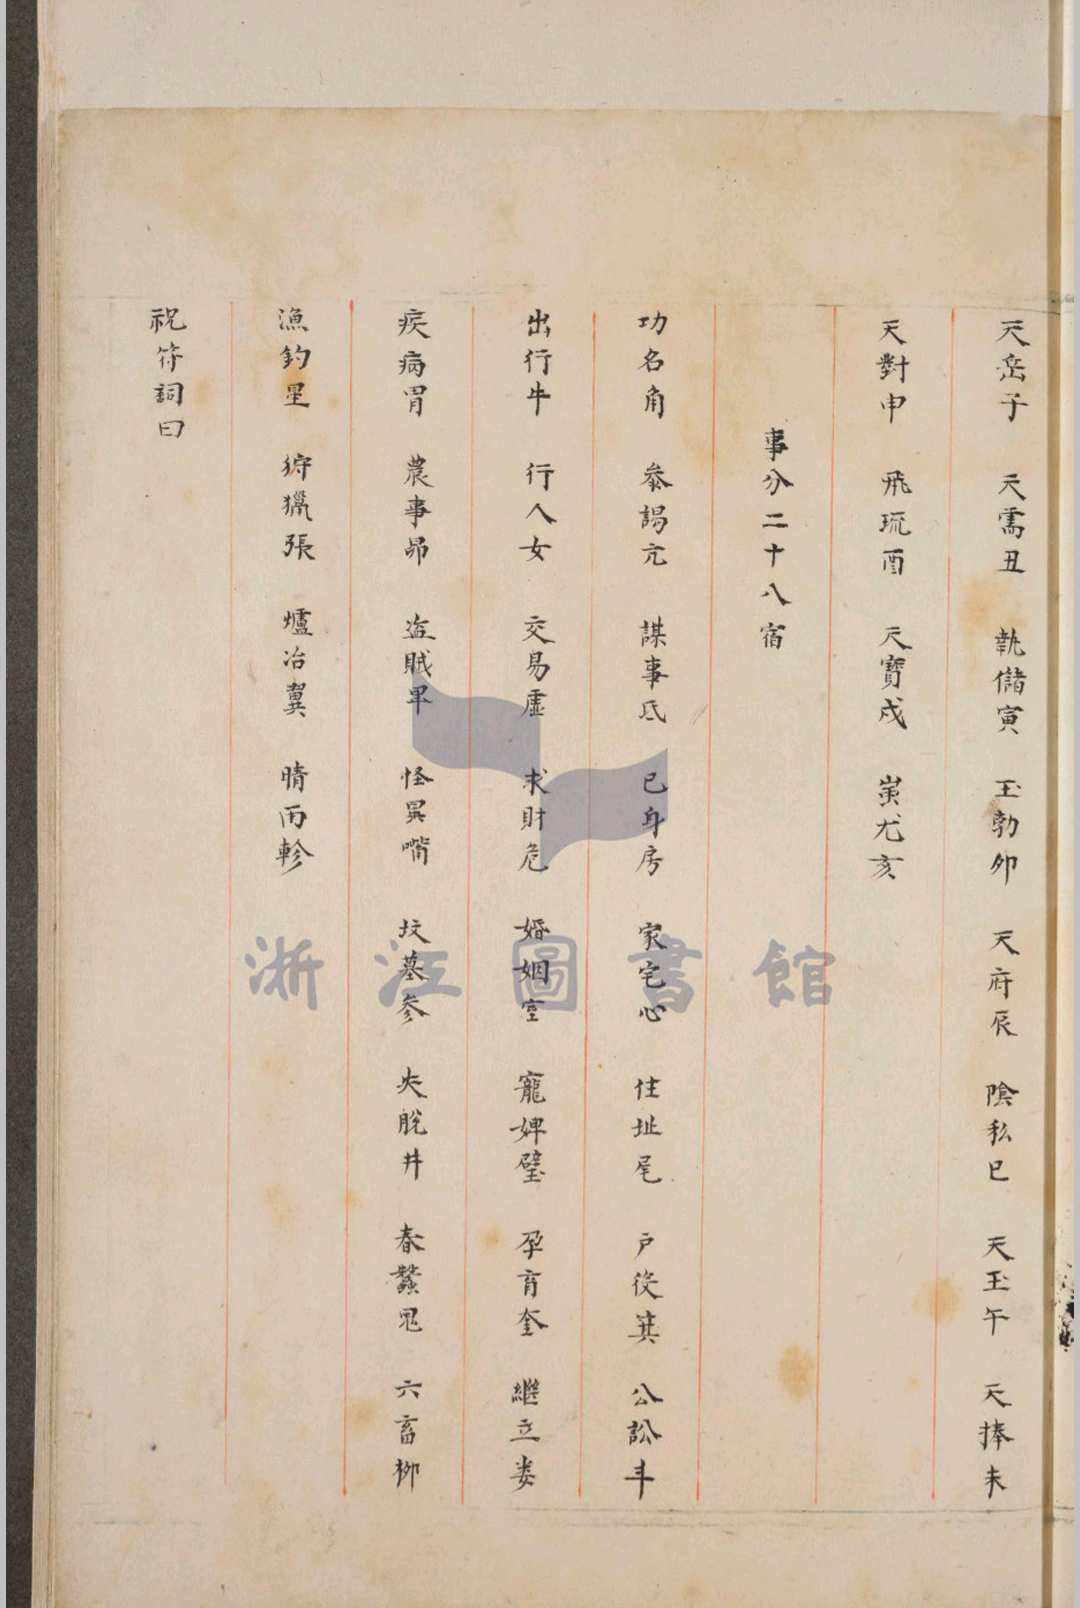 天岳子 天霱丑 執儲寅 玉勃卯 天府辰 陰私巳 天玉午 天捧未
天對申 飛琉酉 天寶戌 蚩尤亥
事分二十八宿
功名角 叅謁亢 謀事氐 已身房 家宅心 住址尾 戶役箕 公訟斗
出行牛 行人女 交易虛 求財危 婚姻室 寵婢壁 孕育奎 繼立婁
疾病胃 農事昴 盗賊畢 怪異嘴 坟墓参 失脫井 春蠶鬼 六畜柳
漁釣星 狩獵張 爐冶翼 晴雨軫
祝符詞曰
浙江圖書館